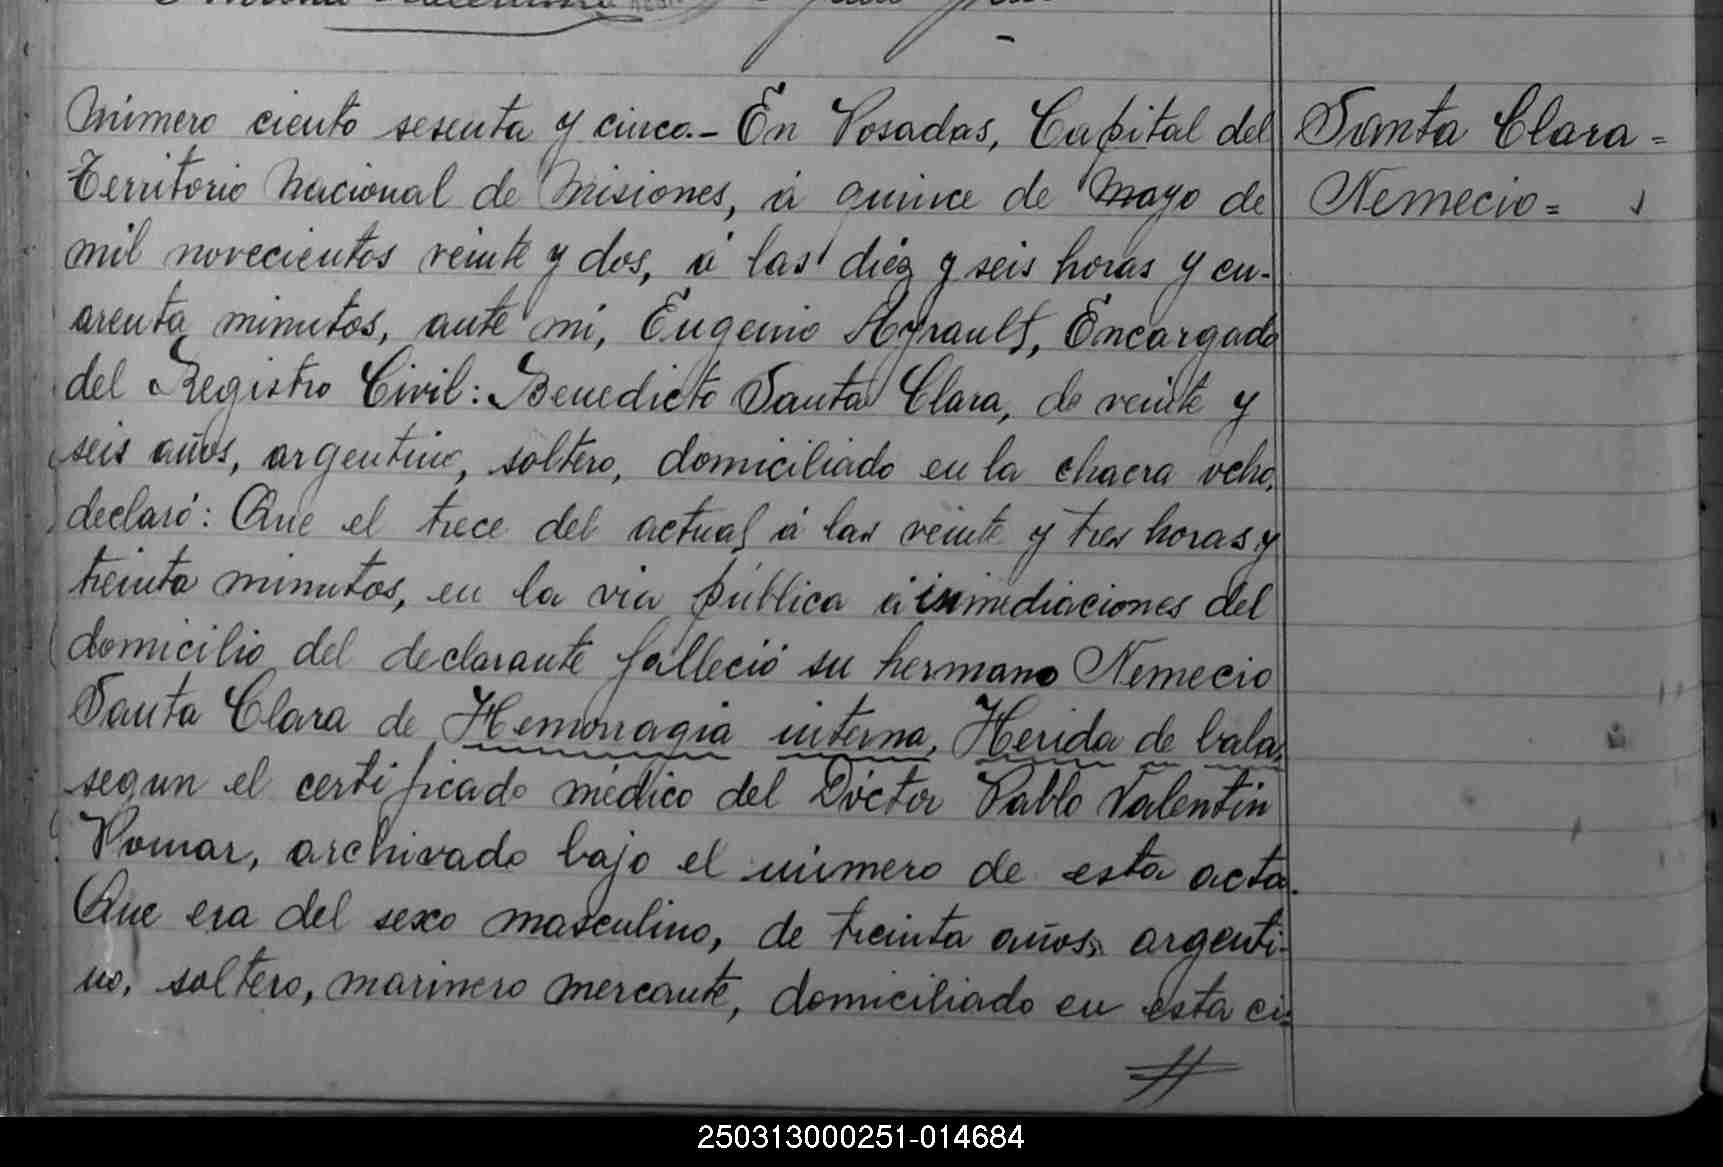 Número ciento sesenta y cinco.- En Posadas, Capital del
Territorio Nacional de Misiones, á quince de Mayo de
mil novecientos veinte y dos, á las diéz y seis horas y cu-
arenta minutos, ante mi, Eugenio Ayrault, Encargado
del Registro Civil: Benedicto Santa Clara, de veinte y
seis años, argentino, soltero, domiciliado en la chacra ocho,
declaró: Que el trece del actual á las veinte y tres horas y
treinta minutos, en la via pública á inmediaciones del
domicilio del declarante falleció su hermano Nemecio
Santa Clara de Hemorragia interna, Herida de bala,
segun el certificado médico del Dóctor Pablo Valentin
Pomar, archivado bajo el número de esta acta.
Que era del sexo masculino, de treinta años, argenti-
no, soltero, marinero mercante, domiciliado en esta ci-
Santa Clara =
Nemecio =
250313000251-014684